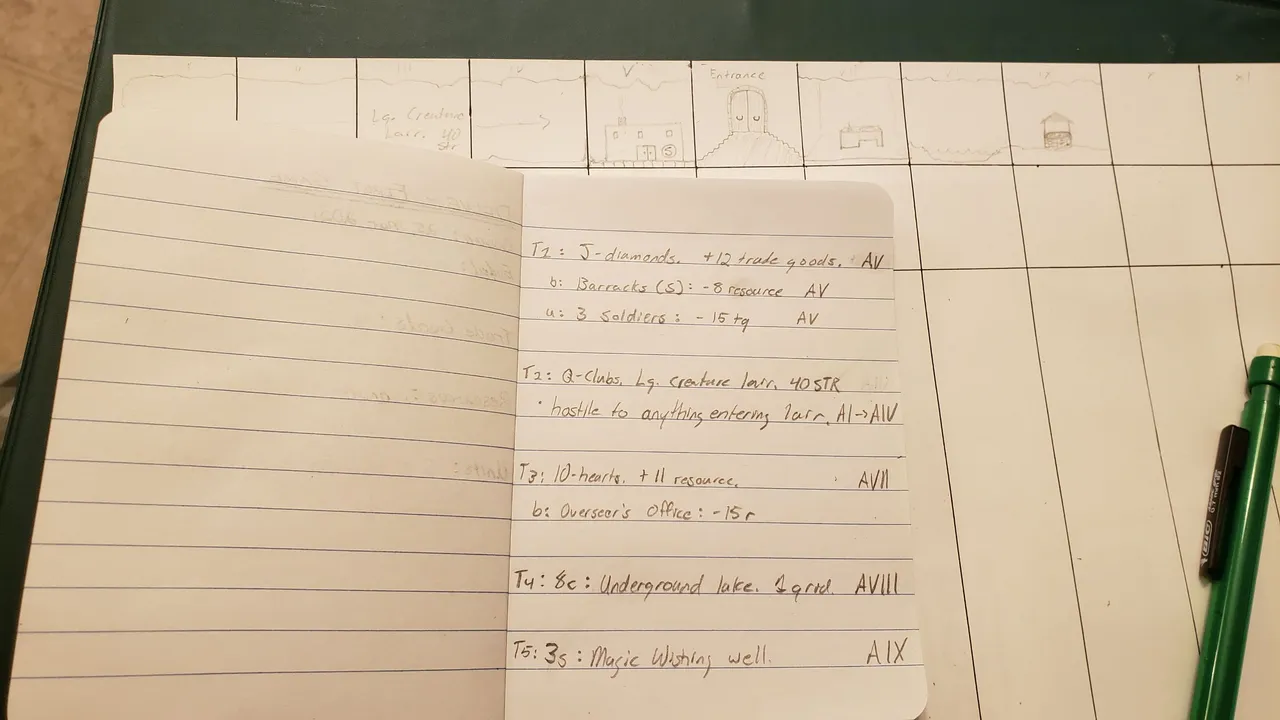 V
Entrance
Lg. Creature
lair. 40
Str
S
T1: J-diamonds. +12 trade goods. AV
b: Barracks (S): -8 resource AV
u: 3 soldiers: -15tg AV
T2: Q-Clubs. Lg. creature lair. 40 STR
· hostile to anything entering lair. AI→AIV
T3: 10-hearts. +11 resource. AVII
b: Overseer's Office: -15r
T4: 8c: Underground lake. 1 grid. AVIII
T5: 3s: Magic Wishing well. AIX
BIC